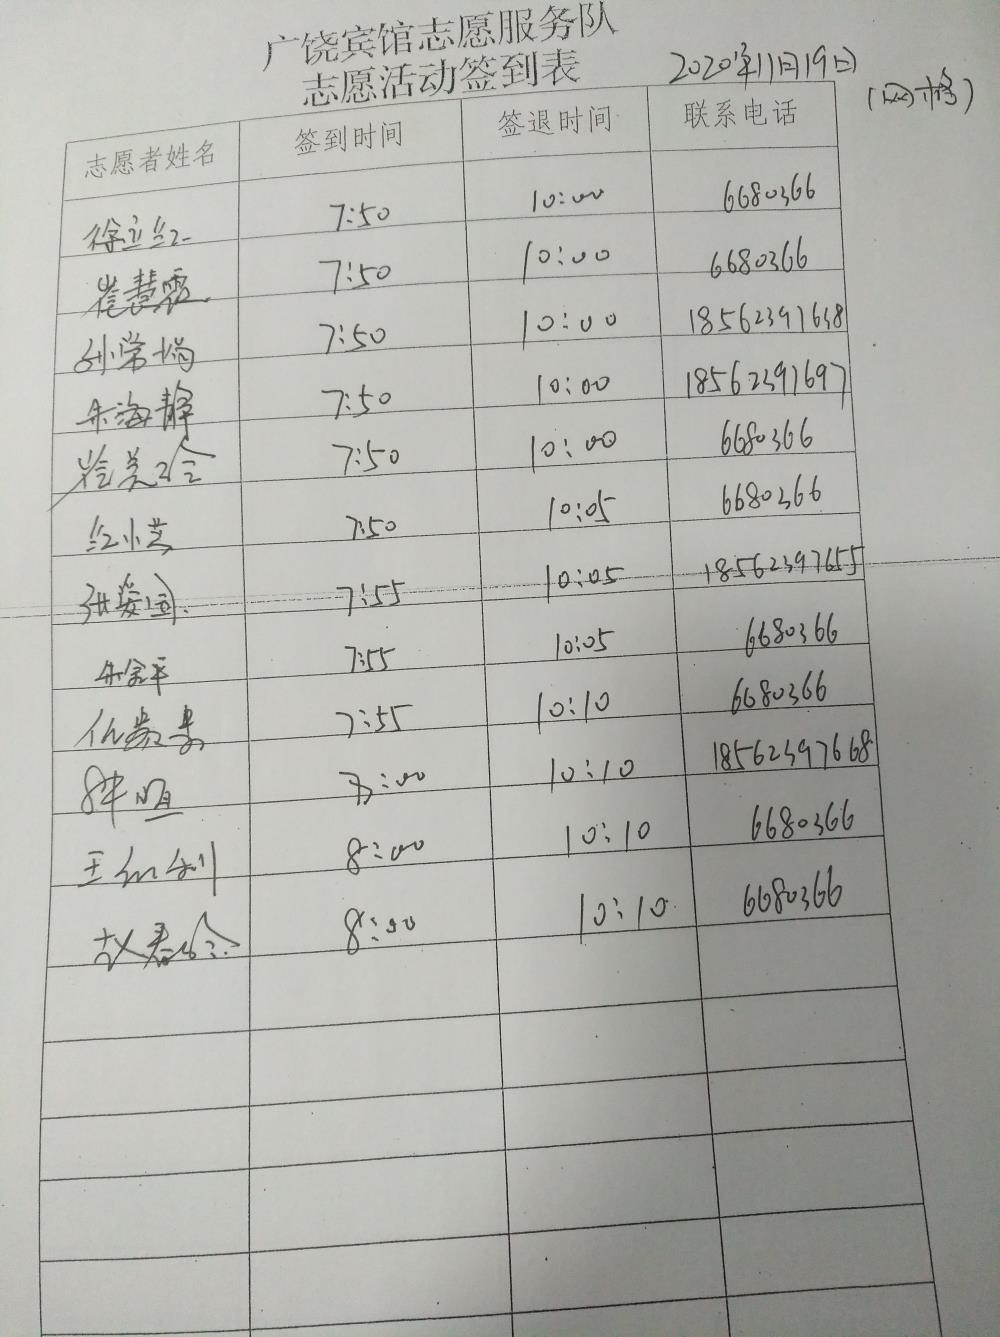 广饶宾馆志愿服务队
志愿活动签到表 2020年11月19日
(网格)
志愿者姓名 签到时间 签退时间 联系电话
徐立红 7:50 10:00 6680366
崔慧霞 7:50 10:00 6680366
孙常娟 7:50 10:00 18562397638
朱海静 7:50 10:00 18562397697
崔美玲 7:50 10:00 6680366
红小芝 7:50 10:05 6680366
张爱国 7:55 10:05 18562397655
朱金平 7:55 10:05 6680366
7:55 10:10 6680366
:00 10:10 18562397668
王 8:00 10:10 6680366
赵春玲 8:00 10:10 6680366